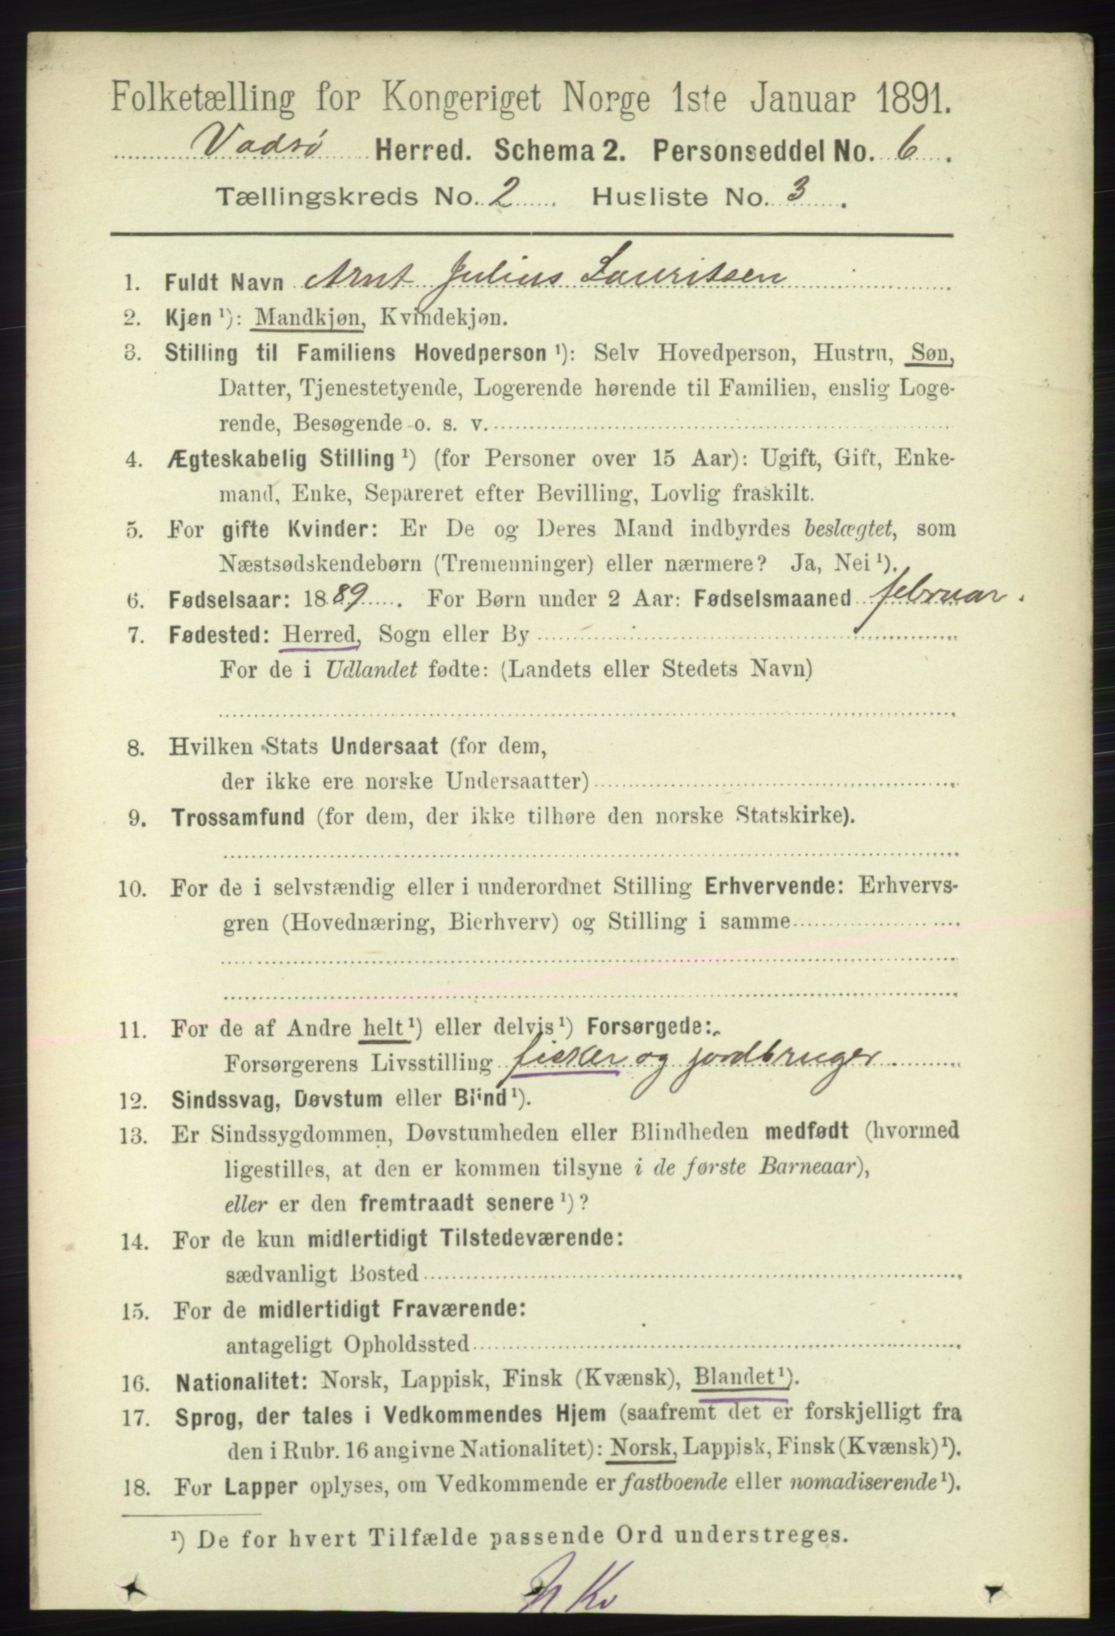 Folketælling for Kongeriget Norge 1ste Januar 1891.
Vadsø Herred. Schema 2. Personseddel No. 6.
Tællingskreds No. 2 Husliste No. 3.
1. Fuldt Navn Arnt Julius Lauritsen
2. Kjøn ¹): Mandkjøn, Kvindekjøn.
3. Stilling til Familiens Hovedperson ¹): Selv Hovedperson, Hustru, Søn,
Datter, Tjenestetyende, Logerende hørende til Familien, enslig Loge-
rende, Besøgende o. s. v.
4. Ægteskabelig Stilling ¹) (for Personer over 15 Aar): Ugift, Gift, Enke-
mand, Enke, Separeret efter Bevilling, Lovlig fraskilt.
5. For gifte Kvinder: Er De og Deres Mand indbyrdes beslægtet, som
Næstsødskendebørn (Tremenninger) eller nærmere? Ja, Nei ¹).
6. Fødselsaar: 1889. For Børn under 2 Aar: Fødselsmaaned februar.
7. Fødested: Herred, Sogn eller By
For de i Udlandet fødte: (Landets eller Stedets Navn)
8. Hvilken Stats Undersaat (for dem,
der ikke ere norske Undersaatter)
9. Trossamfund (for dem, der ikke tilhøre den norske Statskirke).
10. For de i selvstændig eller i underordnet Stilling Erhvervende: Erhvervs-
gren (Hovednæring, Bierhverv) og Stilling i samme
11. For de af Andre helt ¹) eller delvis ¹) Forsørgede:
Forsørgerens Livsstilling fisker og jordbruger.
12. Sindssvag, Døvstum eller Blind ¹).
13. Er Sindssygdommen, Døvstumheden eller Blindheden medfødt (hvormed
ligestilles, at den er kommen tilsyne i de første Barneaar),
eller er den fremtraadt senere ¹)?
14. For de kun midlertidigt Tilstedeværende:
sædvanligt Bosted
15. For de midlertidigt Fraværende:
antageligt Opholdssted
16. Nationalitet: Norsk, Lappisk, Finsk (Kvænsk), Blandet ¹).
17. Sprog, der tales i Vedkommendes Hjem (saafremt det er forskjelligt fra
den i Rubr. 16 angivne Nationalitet): Norsk, Lappisk, Finsk (Kvænsk) ¹).
18. For Lapper oplyses, om Vedkommende er fastboende eller nomadiserende ¹).
¹) De for hvert Tilfælde passende Ord understreges.
N. Kv